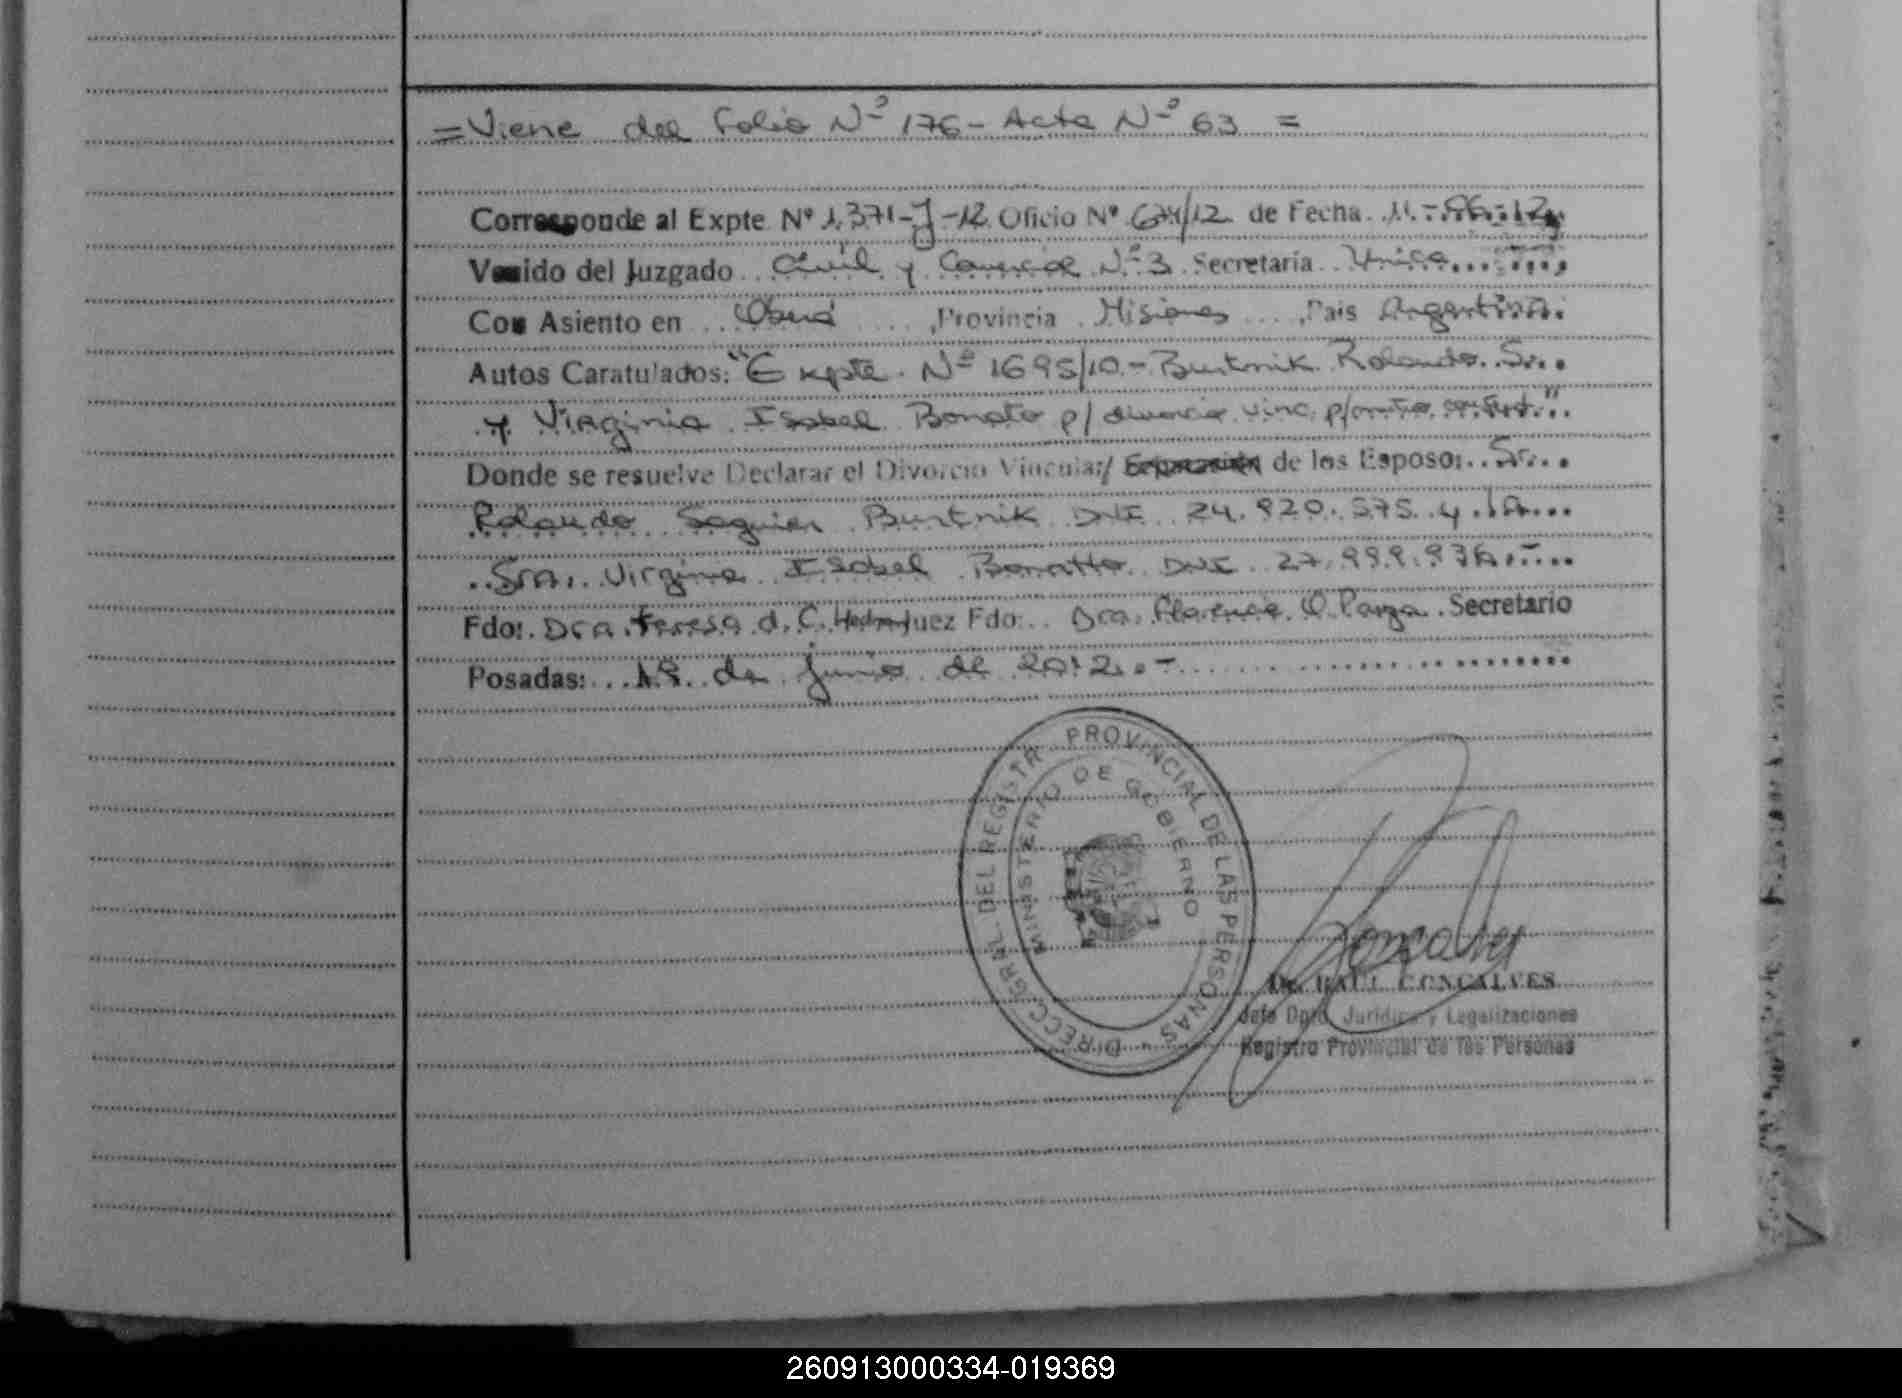 = Viene del Folio Nº 176 - Acta Nº 63 =
Corresponde al Expte Nº 1.371-J-12 Oficio Nº 674/12 de Fecha 11-06-12
Venido del Juzgado Civil y Comercial Nº 3 Secretaría Unica
Con Asiento en Oberá, Provincia Misiones, País Argentina
Autos Caratulados: "Expte Nº 1695/10 - Burtnik Rolando S.
y Virginia Isabel Bonato p/ divorcio vinc. p/
Donde se resuelve Declarar el Divorcio Vincular/ de los Esposos Sr.
Rolando Burtnik DNI 24.920.575 y la
Sra. Virginia Isabel Bonatto DNI 27.999.976
Fdo: Dra. Teresa d. C. Fdo: Dra. Secretario
Posadas: 18 de junio de 2012.-
DIRECC GRAL. DEL REGISTR PROVINCIAL DE LAS PERSONAS
MINISTERIO DE GOBIERNO
Goncalves
Dr. RAUL GONCALVES
Jefe Dpto. Jurídico y Legalizaciones
Registro Provincial de las Personas
260913000334-019369